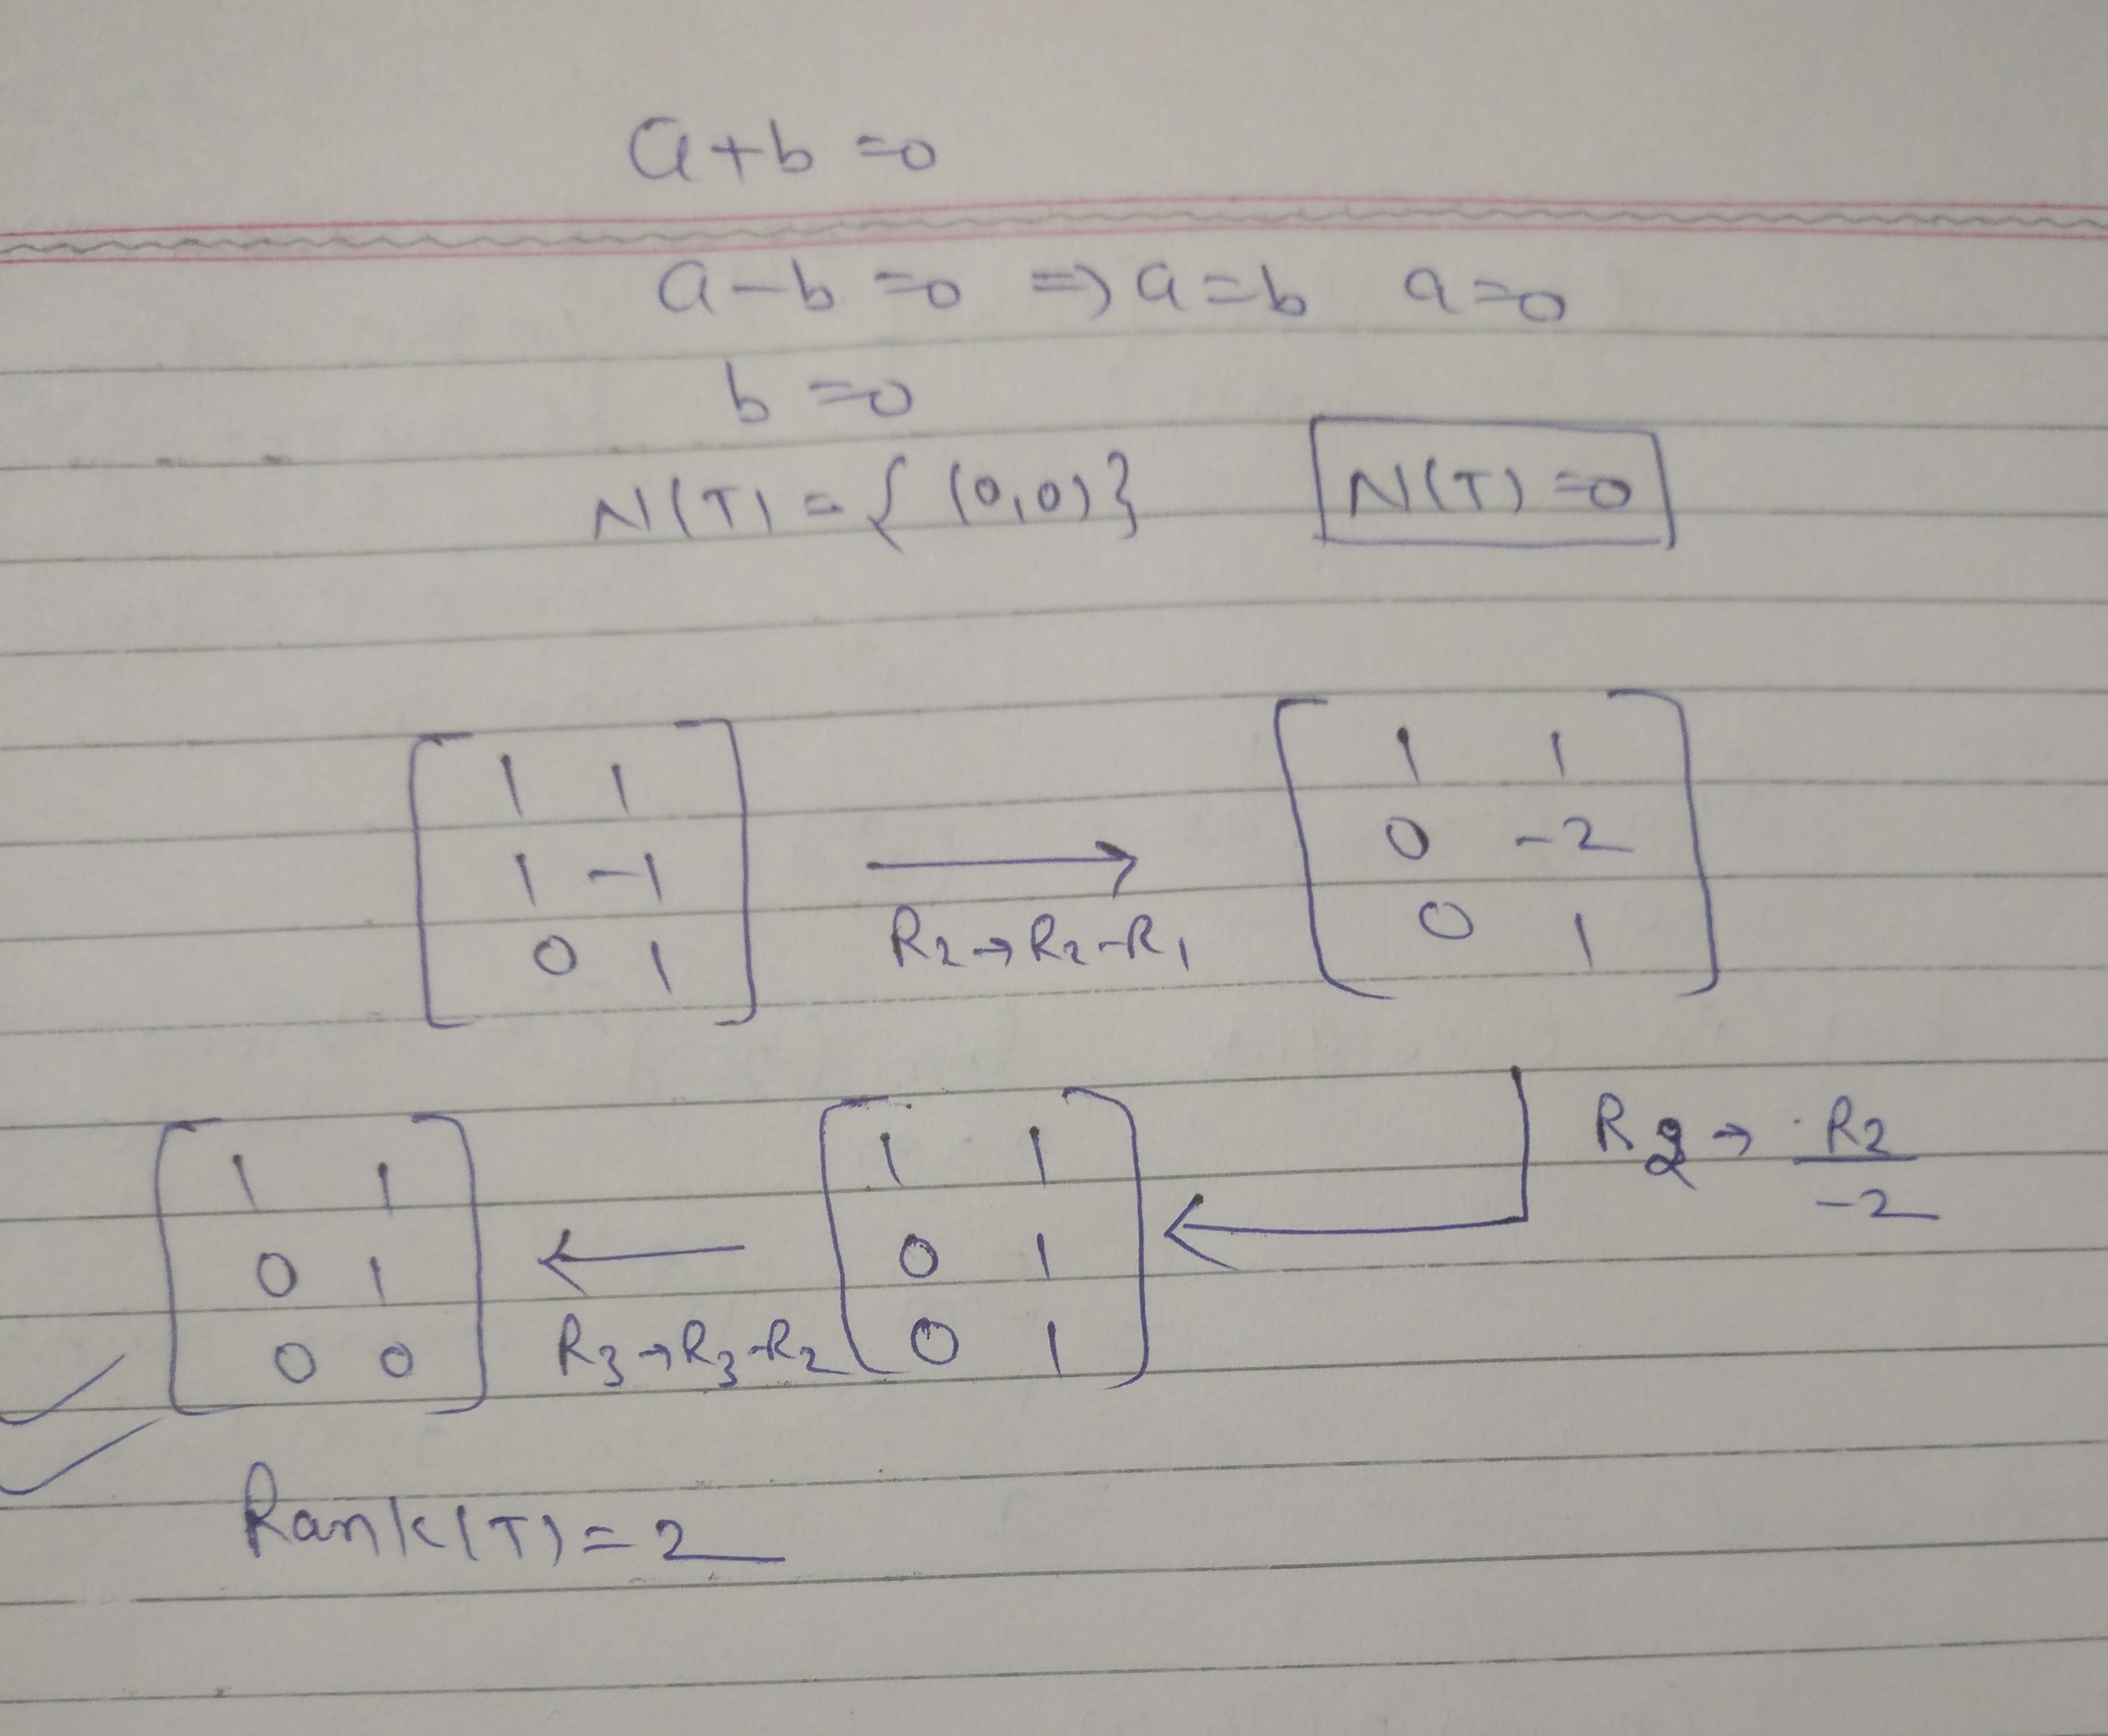 a+b=0
a-b=0 => a=b a=0
b=0
N(T)={(0,0)} N(T)=0
[1 1] [1 1]
[1 -1] → [0 -2]
[0 1] R2→R2-R1 [0 1]
[1 1] [1 1] R2→R2/-2
[0 1] ← [0 1] ←
[0 0] R3→R3-R2 [0 1]
Rank(T)=2